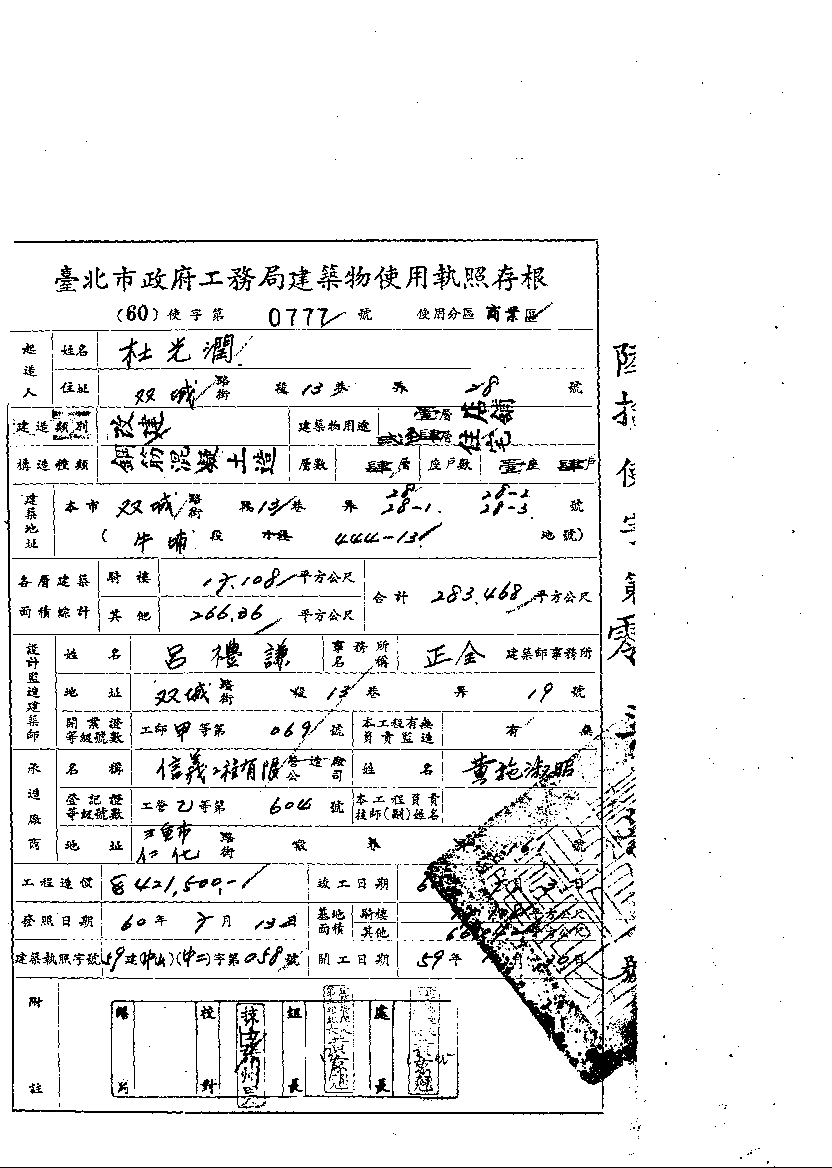 臺北市政府工務局建築物使用執照存根
(60)使字第 0777 號 使用分區 商業區
起造人 姓名 杜光潤
住址 双城 路街 段 13 巷 弄 28 號
建造類別 改建 建築物用途 壹層店鋪 貳至肆層住宅
構造種類 鋼筋混凝土造 層數 肆層 座戶數 壹座 肆戶
建築地址 本市 双城 路街 段 13 巷 弄 28 28-1. 28-2 28-3. 號
( 牛埔 段 小段 444-13 地號)
各層建築面積綜計 騎樓 17.108 平方公尺 合計 283.468 平方公尺
其他 266.36 平方公尺
設計監造建築師 姓名 呂禮謙 事務所名稱 正金 建築師事務所
地址 双城 路街 段 13 巷 弄 19 號
開業證等級號數 工師甲等第 069 號 本工程有無負責監造 有 無
承造廠商 名稱 信義工程有限 營造廠公司 姓名 黃施淑昭
登記證等級號數 工營乙等第 604 號 本工程負責技師(副)姓名
地址 三重市仁化 路街 段 巷 弄 161 號
工程造價 421,500.- 竣工日期
發照日期 60年 月 13日 基地面積 騎樓 平方公尺 其他 平方公尺
建築執照字號 59建(中山)(中二)字第058號 開工日期 59年 月 日
附註 校對 組長 處長
陸拾使字第零